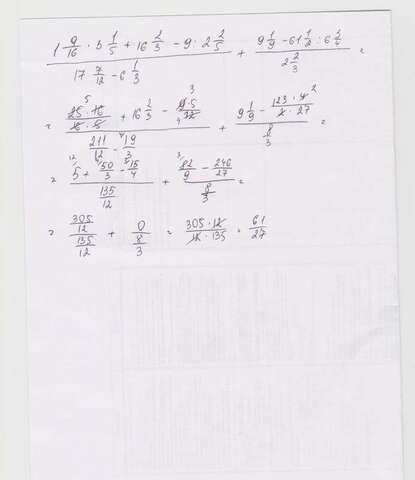 (1 9/16 · 3 1/5 + 16 2/3 − 9 : 2 2/5) / (17 7/12 − 6 1/3) + (9 1/9 − 61 1/2 : 6 3/4) / (2 2/3) =
= ((25 · 16)/(16 · 5) + 16 2/3 − (9 · 5)/12) / (211/12 − 19/3) + (9 1/9 − (123 · 4)/(2 · 27)) / (8/3) =
= (5 + 50/3 − 15/4) / (135/12) + (82/9 − 246/27) / (8/3) =
= (305/12) / (135/12) + 0 / (8/3) = (305 · 12)/(12 · 135) = 61/27